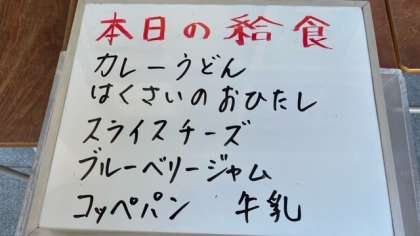 本日の給食
カレーうどん
はくさいのおひたし
スライスチーズ
ブルーベリージャム
コッペパン 牛乳